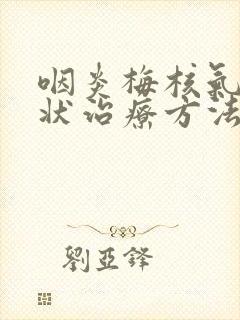 咽炎梅核氣
狀治療方法
劉亞鋒